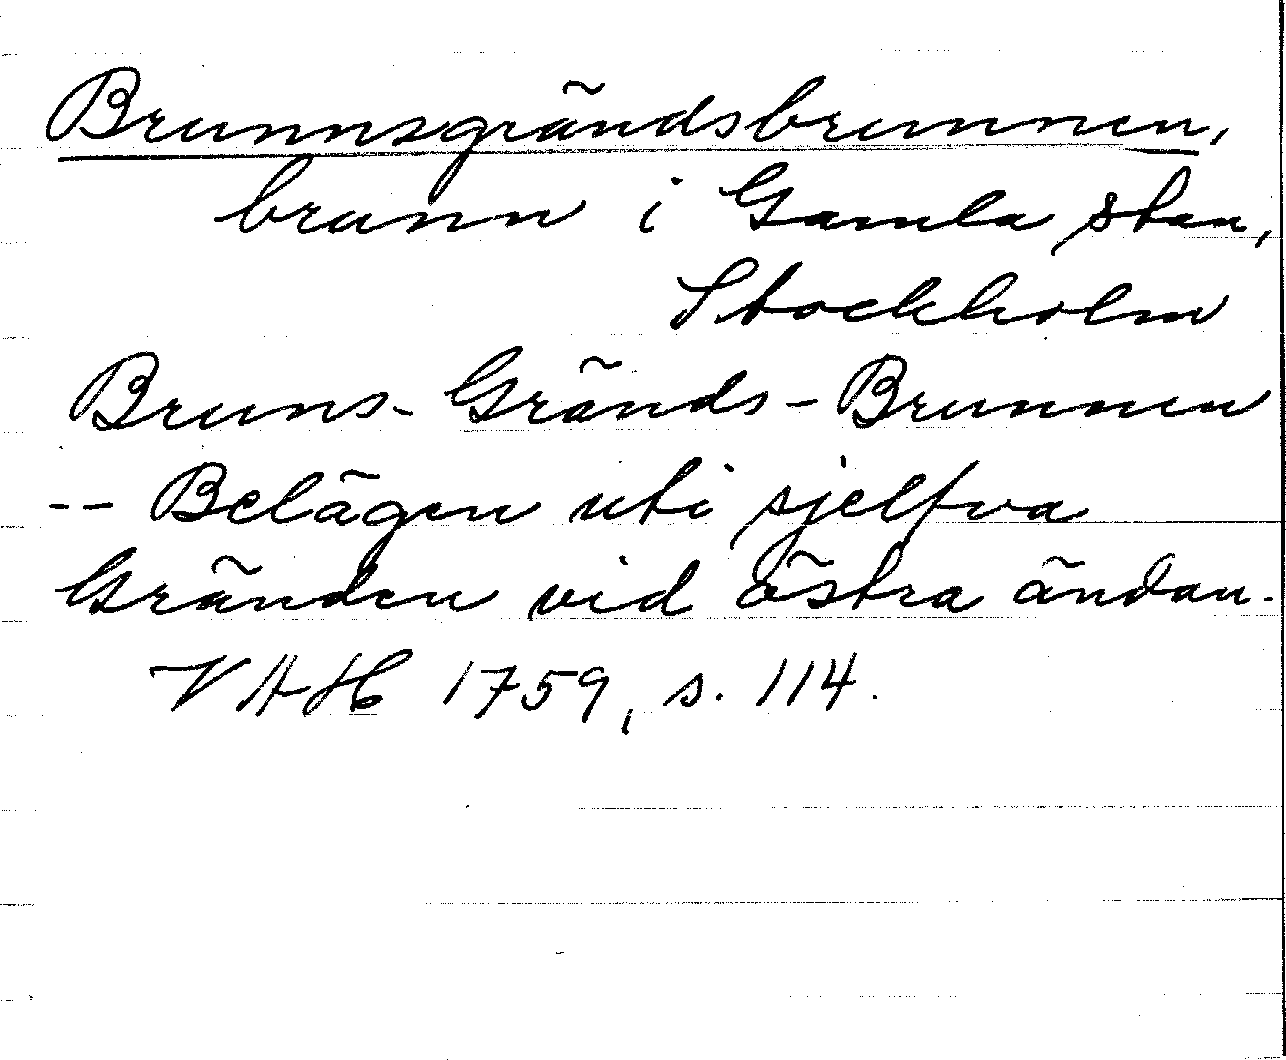 Brunnsgrändsbrunnen,
brunn i Gamla stan,
Stockholm
Bruns-Gränds-Brunnen
-- Belägen uti sjelfva
Gränden vid östra ändan.
VAH 1759, s. 114.